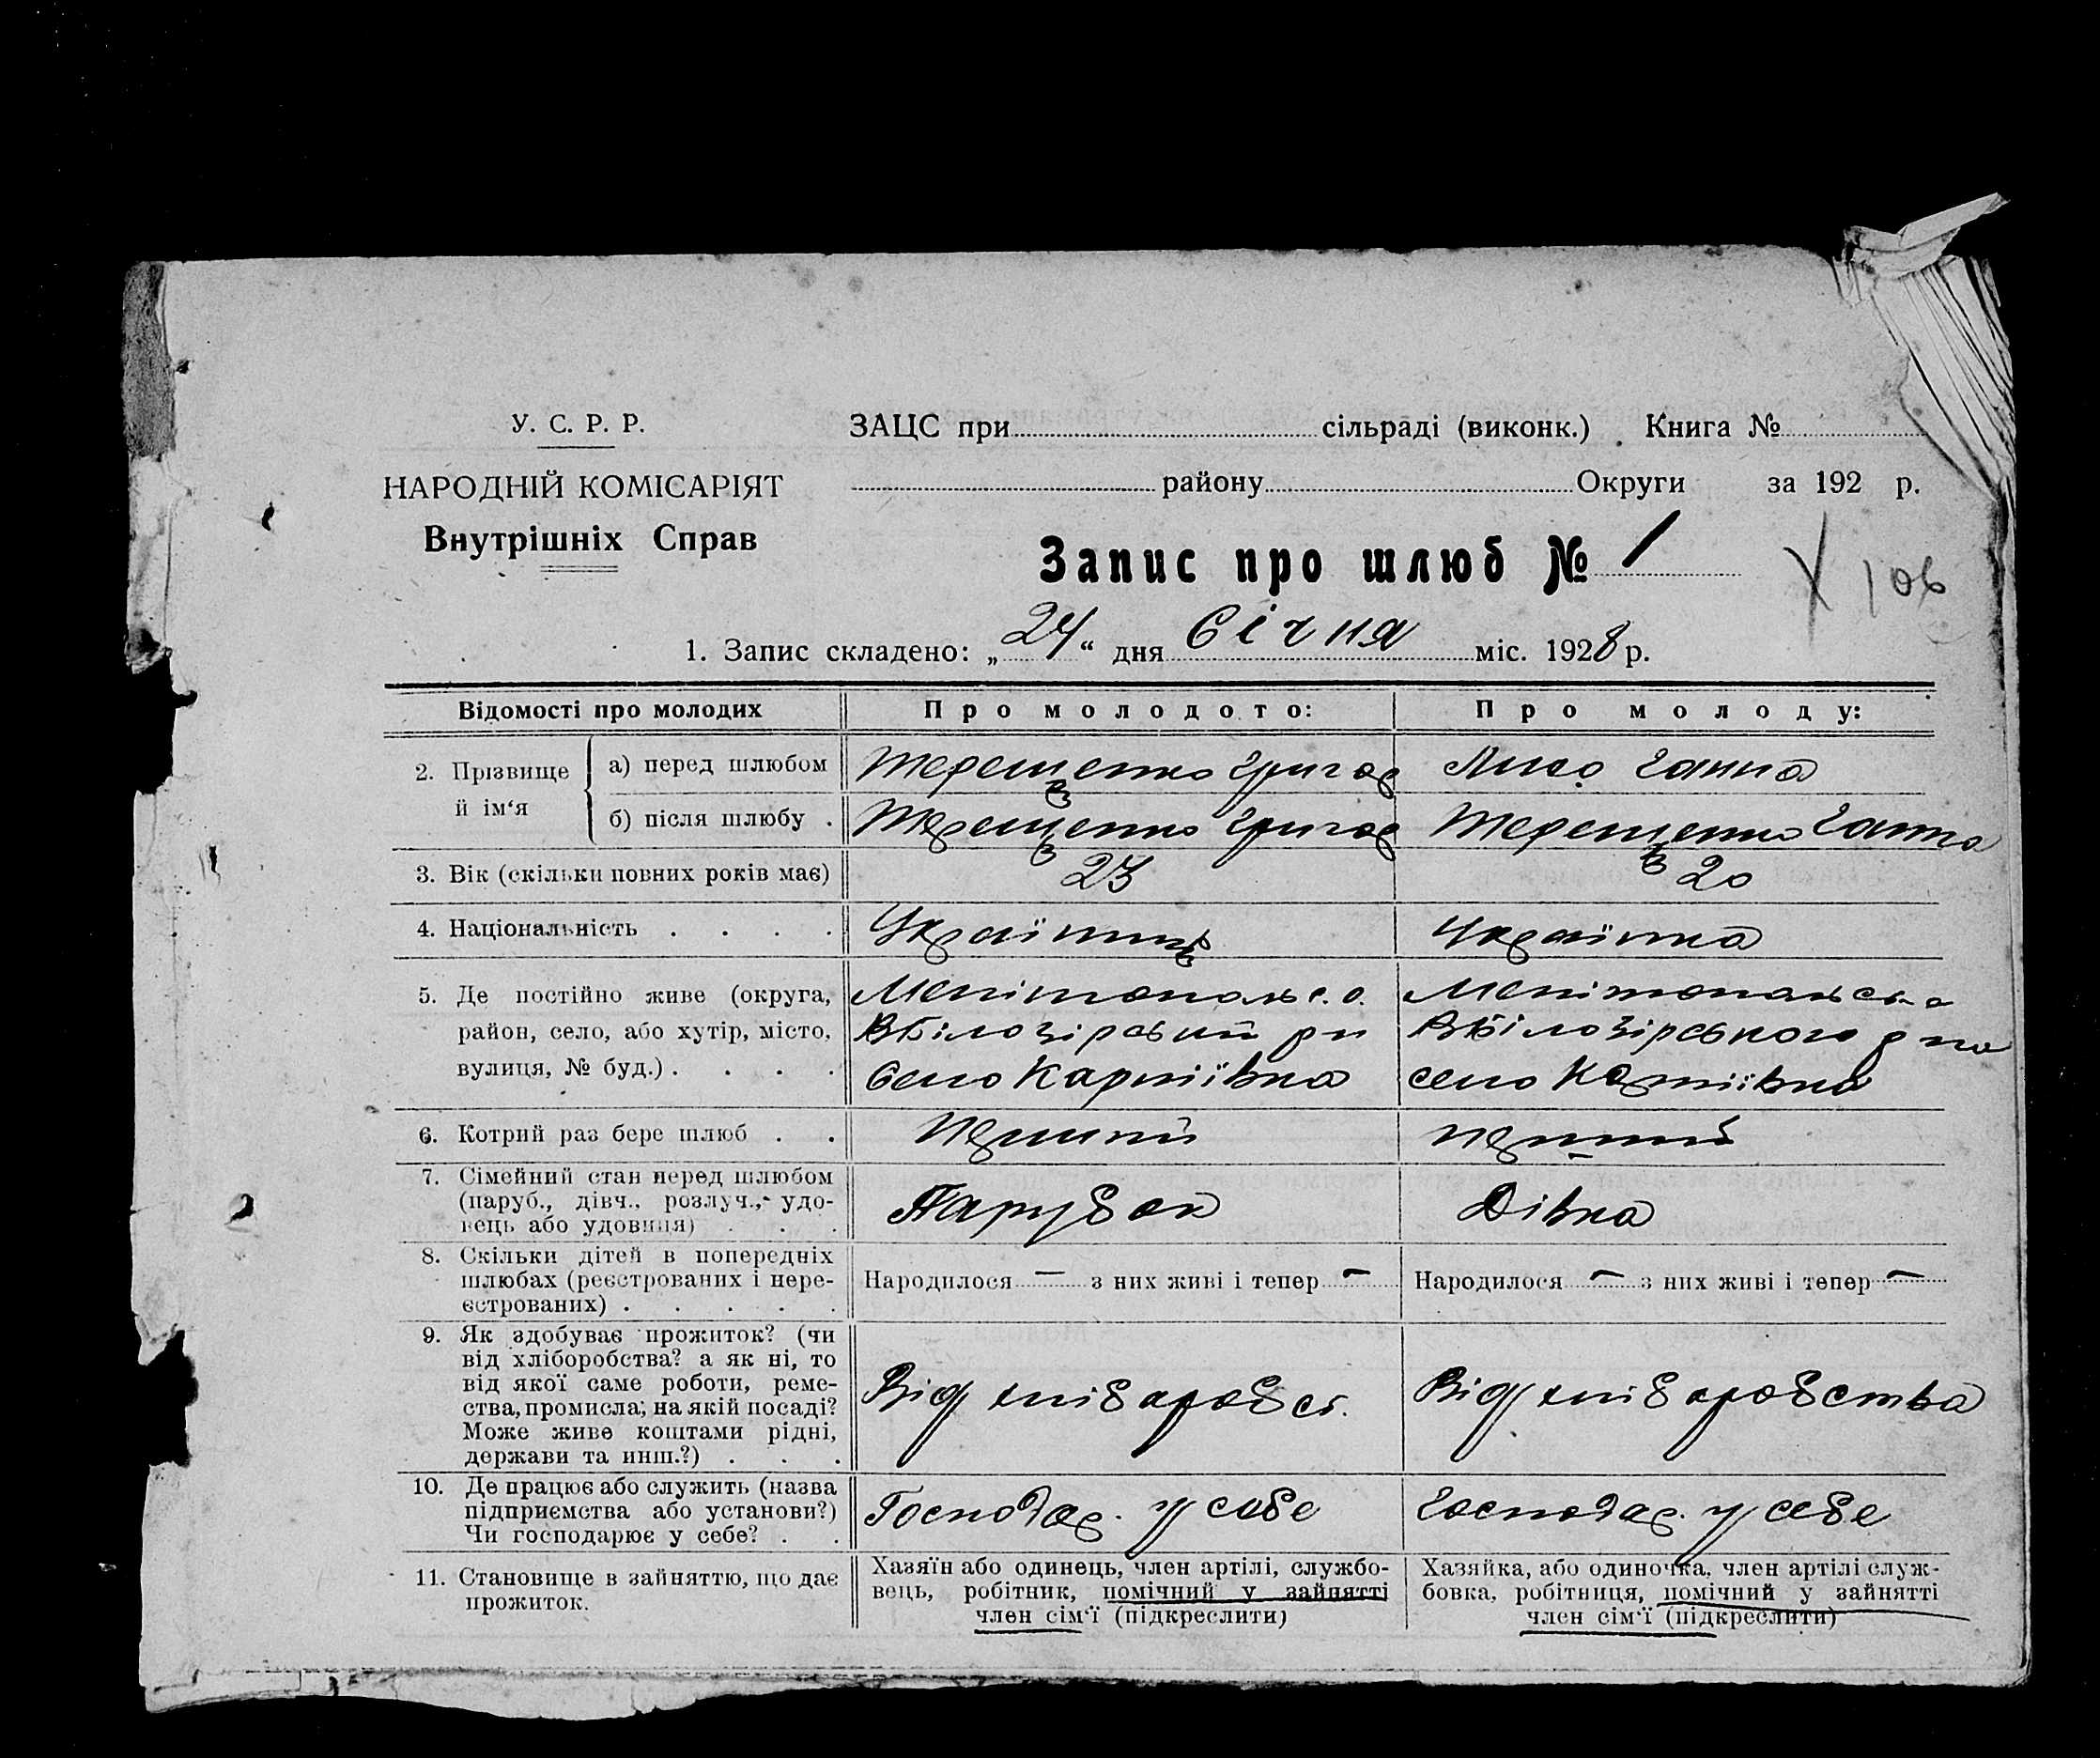 У. С. Р. Р.
НАРОДНІЙ КОМІСАРІЯТ
Внутрішніх Справ
ЗАЦС при сільраді (виконк.) Книга №
району Округи за 192 р.
Запис про шлюб № 1
106
1. Запис складено: „24“ дня Січня міс. 1928 р.
Відомості про молодих
Про молодого:
Про молоду:
2. Прізвище й ім‘я
а) перед шлюбом
Терещенко Григор
Лисо Ганна
б) після шлюбу .
Терещенко Григор
Терещенко Ганна
3. Вік (скільки повних років має)
23
20
4. Національність . . . .
Українець
Українка
5. Де постійно живе (округа,
район, село, або хутір, місто,
вулиця, № буд.) . . . .
Мелітопольс. о.
ВБілозірський р н
Село Карпіївка
Мелітопольсь о
ВБілозірського р на
село Карпіївка
6. Котрий раз бере шлюб . .
Перший
перший
7. Сімейний стан перед шлюбом
(паруб., дівч., розлуч., удо-
вець або удовиця) . . .
Парубок
Дівка
8. Скільки дітей в попередніх
шлюбах (реєстрованих і нере-
єстрованих) . . . . .
Народилося — з них живі і тепер —
Народилося — з них живі і тепер —
9. Як здобуває прожиток? (чи
від хліборобства? а як ні, то
від якої саме роботи, реме-
ства, промисла; на якій посаді?
Може живе коштами рідні,
держави та инш.?) . . .
Від хліборобст.
Від хліборобства
10. Де працює або служить (назва
підприємства або установи?)
Чи господарює у себе? . .
Господар. у себе
Господар. у себе
11. Становище в зайняттю, що дає
прожиток.
Хазяїн або одинець, член артілі, службо-
вець, робітник, помічний у зайнятті
член сім‘ї (підкреслити)
Хазяйка, або одиночка, член артілі служ-
бовка, робітниця, помічний у зайнятті
член сім‘ї (підкреслити)